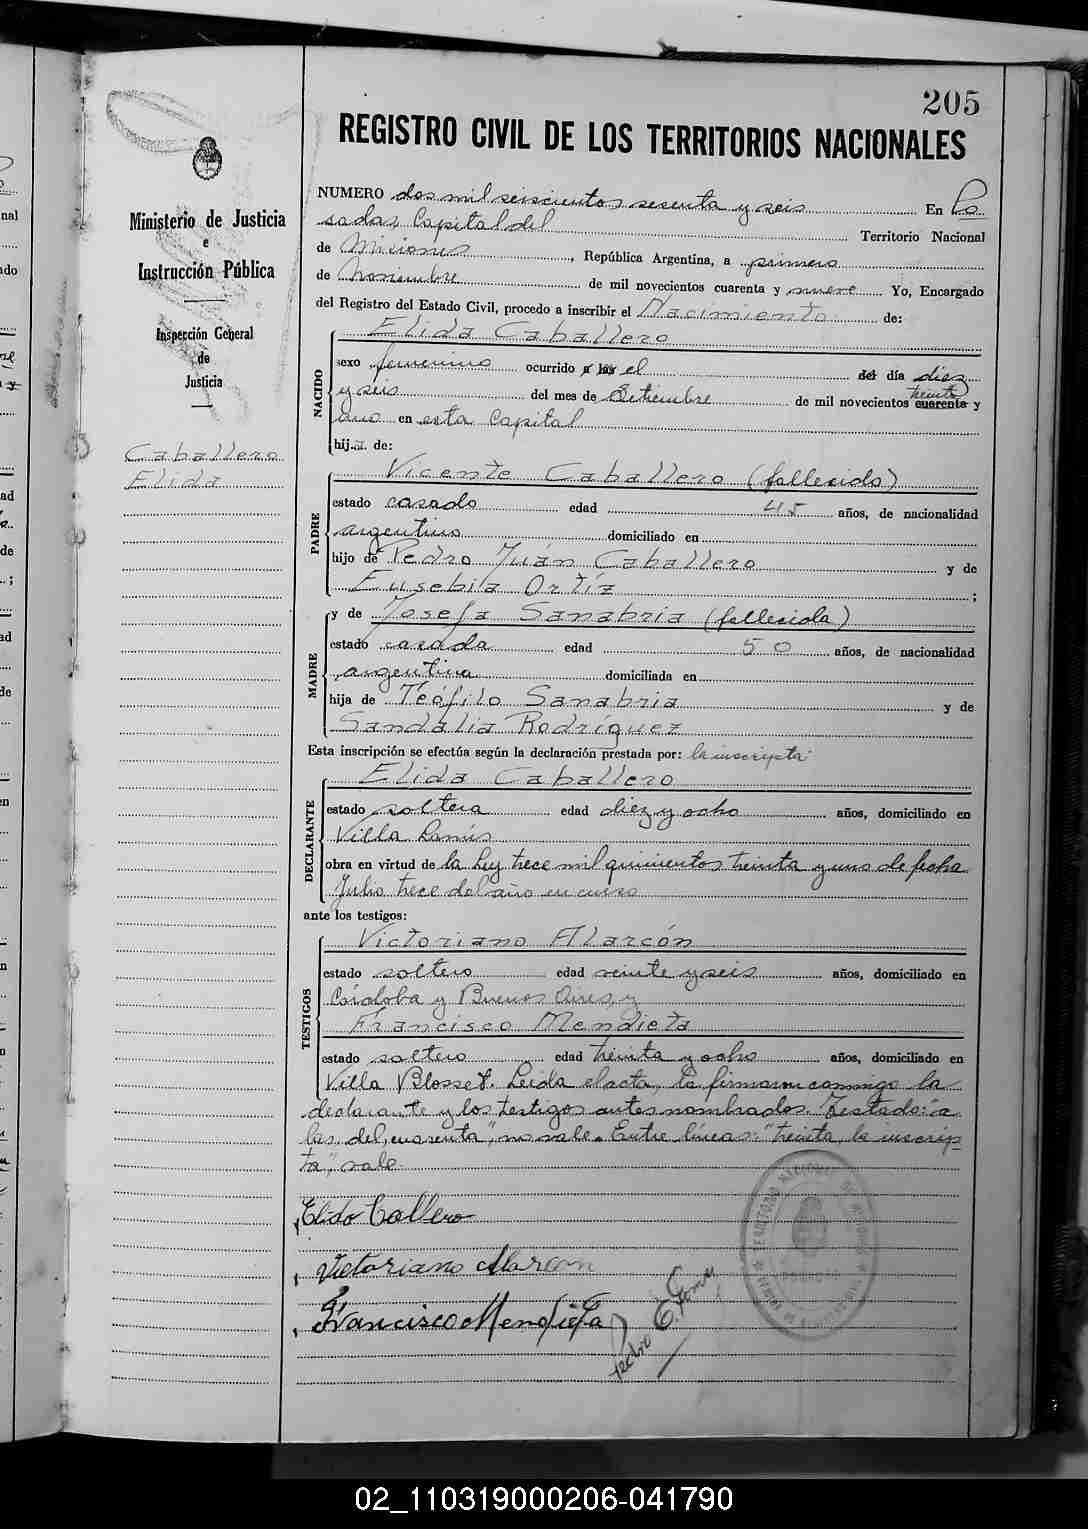 205
REGISTRO CIVIL DE LOS TERRITORIOS NACIONALES
Ministerio de Justicia
e
Instrucción Pública
Inspección General
de
Justicia
Caballero
Elida
NUMERO dos mil seiscientos sesenta y seis En Po
sadas, Capital del Territorio Nacional
de Misiones, República Argentina, a primero
de noviembre de mil novecientos cuarenta y nueve Yo, Encargado
del Registro del Estado Civil, procedo a inscribir el Nacimiento de:
Elida Caballero
NACIDO
sexo femenino ocurrido a las el del día diez
y seis del mes de Setiembre de mil novecientos cuarenta treinta y
uno en esta Capital
hija de:
Vicente Caballero (fallecido)
PADRE
estado casado edad 45 años, de nacionalidad
argentino domiciliado en
hijo de Pedro Juán Caballero y de
Eusebia Ortíz ;
y de Josefa Sanabria (fallecida)
MADRE
estado casada edad 50 años, de nacionalidad
argentina domiciliada en
hija de Teófilo Sanabria y de
Sandalia Rodríguez
Esta inscripción se efectúa según la declaración prestada por: la inscripta
Elida Caballero
DECLARANTE
estado soltera edad diez y ocho años, domiciliado en
Villa Lanús
obra en virtud de la Ley trece mil quinientos treinta y uno de fecha
Julio trece del año en curso
ante los testigos:
Victoriano Alarcón
TESTIGOS
estado soltero edad veinte y seis años, domiciliado en
Córdoba y Buenos Aires, y
Francisco Mendieta
estado soltero edad treinta y ocho años, domiciliado en
Villa Blosset. Leida el acta, la firmaron conmigo la
declarante y los testigos antes nombrados. Testado: "a
las, del, cuarenta", no vale. Entre líneas: "treinta, la inscrip-
ta", vale.
Elida Callero
Victoriano Alarcon
Francisco Mendieta
Pedro E. Gomez
02_110319000206-041790